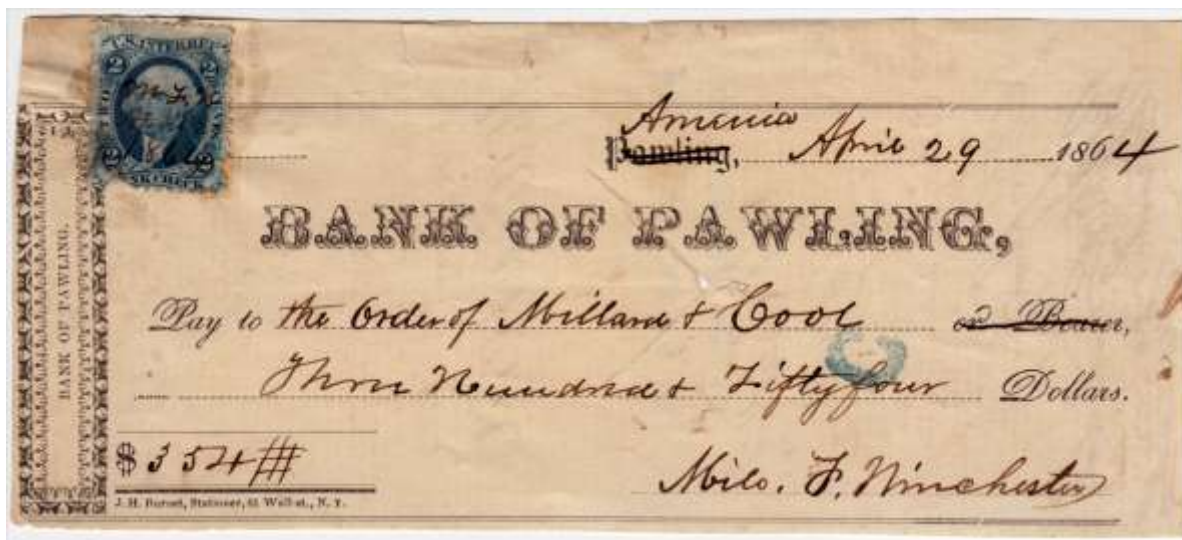 U.S. INTER. REV.
2 2
M. F. W.
2 2
BANK CHECK
Amenia
Pawling, April 29 1864
BANK OF PAWLING,
BANK OF PAWLING.
Pay to the Order of Millard & Cool or Bearer,
Three Hundred & Fifty four Dollars.
$ 354
Milo. F. Winchester
J. H. Stationer, Wall-st., N. Y.